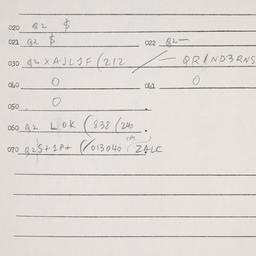 020 Q2 $
021 Q2 $ 022 Q2 —
030 Q2 XAJLJF (212 — QR/ND3RNS
040 O 041 O
050 O
060 Q2 LOK (838 (240
070 Q2S+1P+ (/013040 (ZALC